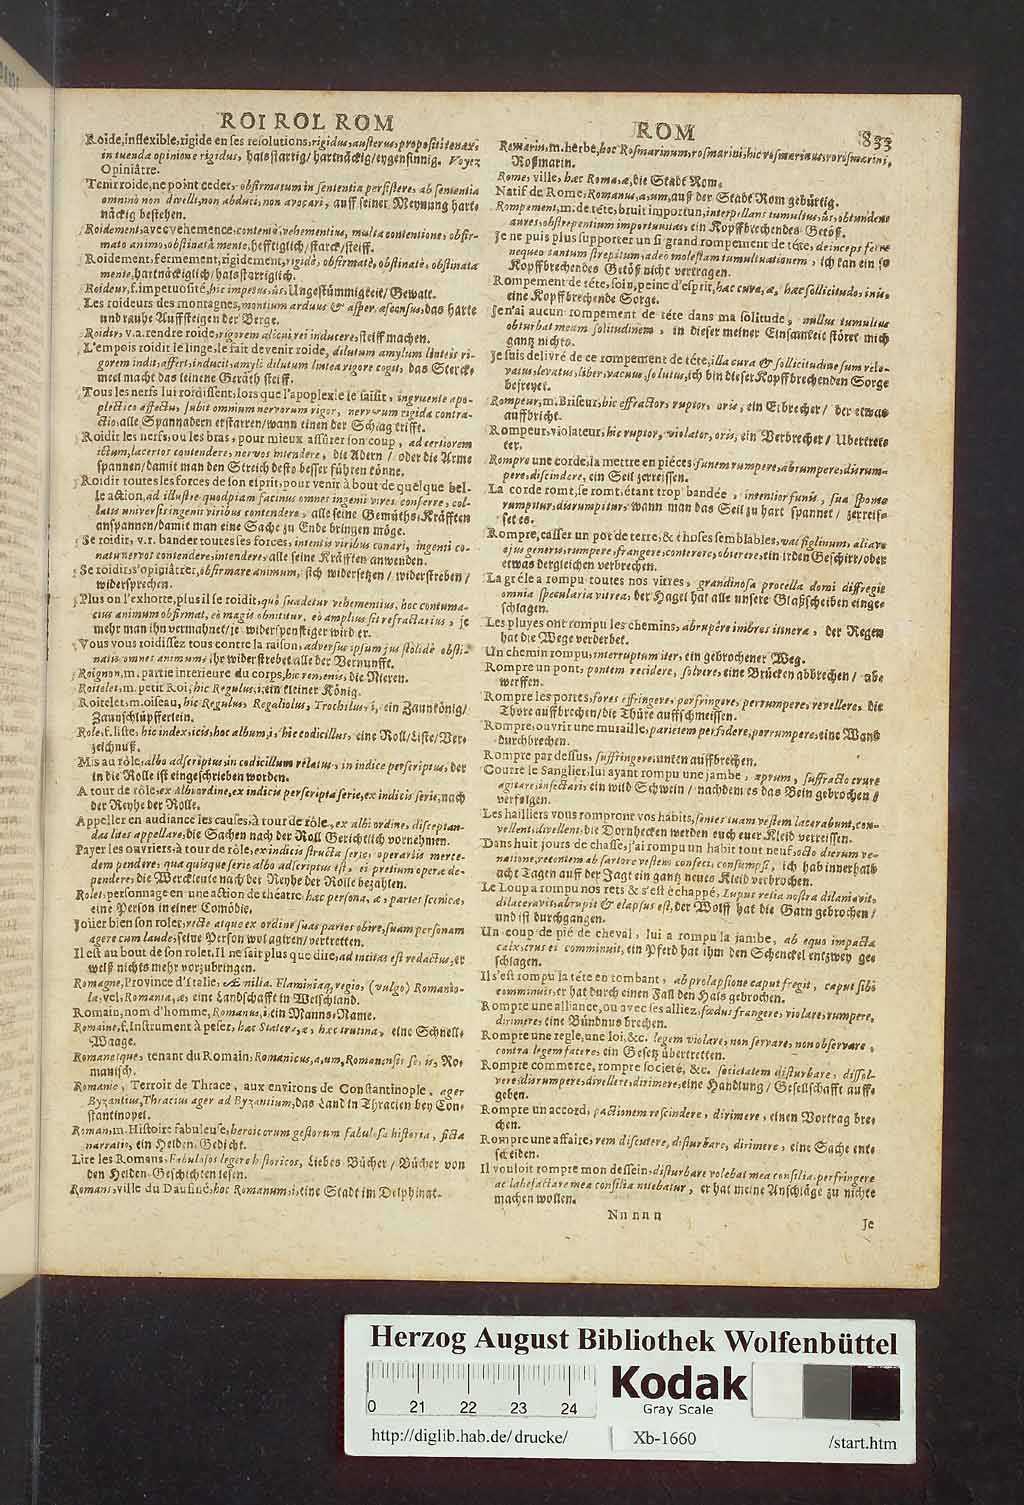 ROI ROL ROM
Roide, inflexible, rigide en ses resolutions, rigidus, austerus, propositi tenax,
in tuenda opinione rigidus, halsstarrig/ hartnäckig/ eygensinnig. Voyez
Opiniâtre.
Tenir roide, ne point ceder, obfirmatum in sententia persistere, ab sententia
omnino non divelli, non abduci, non avocari, auff seiner Meynung hart-
näckig bestehen.
Roidement, avec vehemence, contentè, vehementius, multa contentione, obfir-
mato animo, obstinatâ mente, hefftiglich/ starck/ steiff.
Roidement, fermement, rigidement, rigidè, obfirmatè, obstinatè, obstinata
mente, hartnäckiglich/ halsstarriglich.
Roideur, f. impetuosité, hic impetus, ûs, Ungestümmigkeit/ Gewalt.
Les roideurs des montagnes, montium arduus & asper ascensus, das harte
und rauhe Auffsteigen der Berge.
Roidir, v.a. rendre roide, rigorem alicui rei inducere, steiff machen.
L'empois roidit le linge, le fait devenir roide, dilutum amylum linteis ri-
gorem indit, affert, inducit, amyli dilutum lintea rigore cogit, das Sterck-
meel macht das leinene Geräth steiff.
Tous les nerfs lui roidissent, lors que l'apoplexie le saisit, ingruente apo-
plectico affectu, subit omnium nervorum rigor, nervorum rigida contra-
ctio, alle Spannadern erstarren/ wann einen der Schlag trifft.
Roidir les nerfs, ou les bras, pour mieux assûrer son coup, ad certiorem
ictum, lacertos contendere, nervos intendere, die Adern/ oder die Arme
spannen/ damit man den Streich desto besser führen könne.
Roidir toutes les forces de son esprit, pour venir à bout de quelque bel-
le action, ad illustre quodpiam facinus omnes ingenii vires conferre, col-
latis universis ingenii viribus contendere, alle seine Gemüths-Kräfften
anspannen/ damit man eine Sache zu Ende bringen möge.
Se roidir, v.r. bander toutes ses forces, intentis viribus conari, ingenti co-
natu nervos contendere, intendere, alle seine Kräfften anwenden.
Se roidir, s'opiniâtrer, obfirmare animum, sich widersetzen/ widerstreben/
widersprechen.
Plus on l'exhorte, plus il se roidit, quò suadetur vehementius, hoc contuma-
cius animum obfirmat, eò magis obnititur, eò amplius fit refractarius, je
mehr man ihn vermahnet/ je widerspenstiger wird er.
Vous vous roidissez tous contre la raison, adversus ipsum jus stolidè obsti-
natis omnes animum, ihr widerstrebet alle der Vernunfft.
Roignon, m. partie interieure du corps, hic ren, enis, die Nieren.
Roitelet, m. petit Roi, hic Regulus, i, ein kleiner König.
Roitelet, m. oiseau, hic Regulus, Regaliolus, Trochilus, i, ein Zaunkönig/
Zaunschlüpfferlein.
Role, f. liste, hic index, icis, hoc album, i, hic codicillus, eine Roll/ Liste/ Ver-
zeichnuß.
Mis au rôle, albo adscriptus, in codicillum relatus, in indice perscriptus, der
in die Rolle ist eingeschrieben worden.
A tour de rôle, ex Albi ordine, ex indicis perscripta serie, ex indicis serie, nach
der Reyhe der Rolle.
Appeller en audiance les causes, à tour de rôle, ex albi ordine, disceptan-
das lites appellare, die Sachen nach der Roll Gerichtlich vornehmen.
Payer les ouvriers, à tour de rôle, ex indicis structa serie, operariis merce-
dem pendere, qua quisque serie albo adscriptus est, ei pretium operæ de-
pendere, die Werckleute nach der Reyhe der Rolle bezahlen.
Rolet, personnage en une action de théatre, hæc persona, æ, partes scenicæ,
eine Person in einer Comödie.
Joüer bien son rolet, rectè atque ex ordine suas partes obire, suam personam
agere cum laude, seine Person wol agiren/ vertretten.
Il est au bout de son rolet, Il ne sait plus que dire, ad incitas est redactus, er
weiß nichts mehr vorzubringen.
Romagne, Province d'Italie, Æmilia, Flaminia, regio, (vulgo) Romanio-
la, vel, Romania, æ, eine Landschafft in Welschland.
Romain, nom d'homme, Romanus, i, ein Manns-Name.
Romaine, f. Instrument à peser, hæc Statera, æ, hæc trutina, eine Schnell-
Waage.
Romanesque, tenant du Romain, Romanicus, a, um, Romanensis se, is, Ro-
manisch.
Romanie, Terroir de Thrace, aux environs de Constantinople, ager
Byzantius, Thracius ager ad Byzantium, das Land in Thracien bey Con-
stantinopel.
Roman, m. Histoire fabuleuse, heroicorum gestorum fabulosa historia, ficta
narratio, ein Helden-Gedicht.
Lire les Romans, Fabulosos legere historicos, Liebes-Bücher/ Bücher von
den Helden-Geschichten lesen.
Romans, ville du Daufiné, hoc Romanum, i, eine Stadt im Delphinat.
ROM 833
Romarin, m. herbe, hoc Rosmarinum, rosmarini, hic rosmarinus, rorismarini,
Roßmarin.
Rome, ville, hæc Roma, æ, die Stadt Rom.
Natif de Rome, Romanus, a, um, auß der Stadt Rom gebürtig.
Rompement, m. de tête, bruit importun, interpellans tumultus, ûs, obtundens
aures, obstrepentium importunitas, ein Kopffbrechendes Getöß.
Je ne puis plus supporter un si grand rompement de tête, deinceps ferre
nequeo tantum strepitum, adeo molestam tumultuationem, ich kan ein so
Kopffbrechendes Getöß nicht vertragen.
Rompement de tête, soin, peine d'esprit, hæc cura, æ, hæc sollicitudo, inis,
eine Kopffbrechende Sorge.
Je n'ai aucun rompement de tête dans ma solitude, nullus tumultus
obturbat meam solitudinem, in dieser meiner Einsamkeit störet mich
gantz nichts.
Je suis delivré de ce rompement de tête, illa cura & sollicitudine sum rele-
vatus, levatus, liber, vacuus, solutus, ich bin dieser Kopffbrechenden Sorge
befreyet.
Rompeur, m. Briseur, hic effractor, ruptor, oris, ein Erbrecher/ der etwas
auffbricht.
Rompeur, violateur, hic ruptor, violator, oris, ein Verbrecher/ Ubertret-
ter.
Rompre une corde, la mettre en piéces, funem rumpere, abrumpere, dirum-
pere, discindere, ein Seil zerreissen.
La corde romt, se romt, étant trop bandée, intentior funis, sua sponte
rumpitur, disrumpitur, wann man das Seil zu hart spannet/ zerreis-
set es.
Rompre, casser un pot de terre, & choses semblables, vas figlinum, aliave
ejus generis, rumpere, frangere, conterere, obterere, ein irden Geschirr/ oder
etwas dergleichen verbrechen.
La grêle a rompu toutes nos vitres, grandinosa procella domi diffregit
omnia specularia vitrea, der Hagel hat alle unsere Glaßscheiben einge-
schlagen.
Les pluyes ont rompu les chemins, abrupêre imbres itinera, der Regen
hat die Wege verderbet.
Un chemin rompu, interruptum iter, ein gebrochener Weg.
Rompre un pont, pontem recidere, solvere, eine Brücken abbrechen/ abe
werffen.
Rompre les portes, fores effringere, perfringere, perrumpere, revellere, die
Thüre auffbrechen/ die Thüre auffschmeissen.
Rompre, ouvrir une muraille, parietem perfodere, perrumpere, eine Wand
durchbrechen.
Rompre par dessus, suffringere, unten auffbrechen.
Courre le Sanglier, lui ayant rompu une jambe, aprum, suffracto crure
agitare, insectari, ein wild Schwein/ nachdem es das Bein gebrochen/
verfolgen.
Les halliers vous rompront vos habits, sentes tuam vestem lacerabunt, con-
vellent, divellent, die Dornhecken werden euch euer Kleid verreissen.
Dans huit jours de chasse, j'ai rompu un habit tout neuf, octo dierum ve-
natione, recentem ab sartore vestem confeci, consumpsi, ich hab innerhalb
acht Tagen auff der Jagt ein gantz neues Kleid verbrochen.
Le Loup a rompu nos rets & s'est échappé, Lupus retia nostra dilaniavit,
dilaceravit, abrupit & elapsus est, der Wolff hat die Garn gebrochen/
und ist durchgangen.
Un coup de pié de cheval, lui a rompu la jambe, ab equo impacta
calx, crus ei comminuit, ein Pferd hat ihm den Schenckel entzwey ge-
schlagen.
Il s'est rompu la tête en tombant, ab prolapsione caput fregit, caput sibi
comminuit, er hat durch einen Fall den Hals gebrochen.
Rompre une alliance, ou avec ses alliez, fœdus frangere, violare, rumpere,
dirimere, eine Bündnus brechen.
Rompre une regle, une loi, &c. legem violare, non servare, non observare,
contra legem facere, ein Gesetz übertretten.
Rompre commerce, rompre societé, &c. societatem disturbare, dissol-
vere, disrumpere, divellere, dirimere, eine Handlung/ Gesellschafft auff-
geben.
Rompre un accord, pactionem rescindere, dirimere, einen Vortrag bre-
chen.
Rompre une affaire, rem discutere, disturbare, dirimere, eine Sache ent-
scheiden.
Il vouloit rompre mon dessein, disturbare volebat mea consilia, perfringere
ac labefactare mea consilia nitebatur, er hat meine Anschläge zu nichte
machen wollen.
Nn nn n
Je
Herzog August Bibliothek Wolfenbüttel
0 21 22 23 24
Kodak
Gray Scale
http://diglib.hab.de/drucke/ Xb-1660 /start.htm